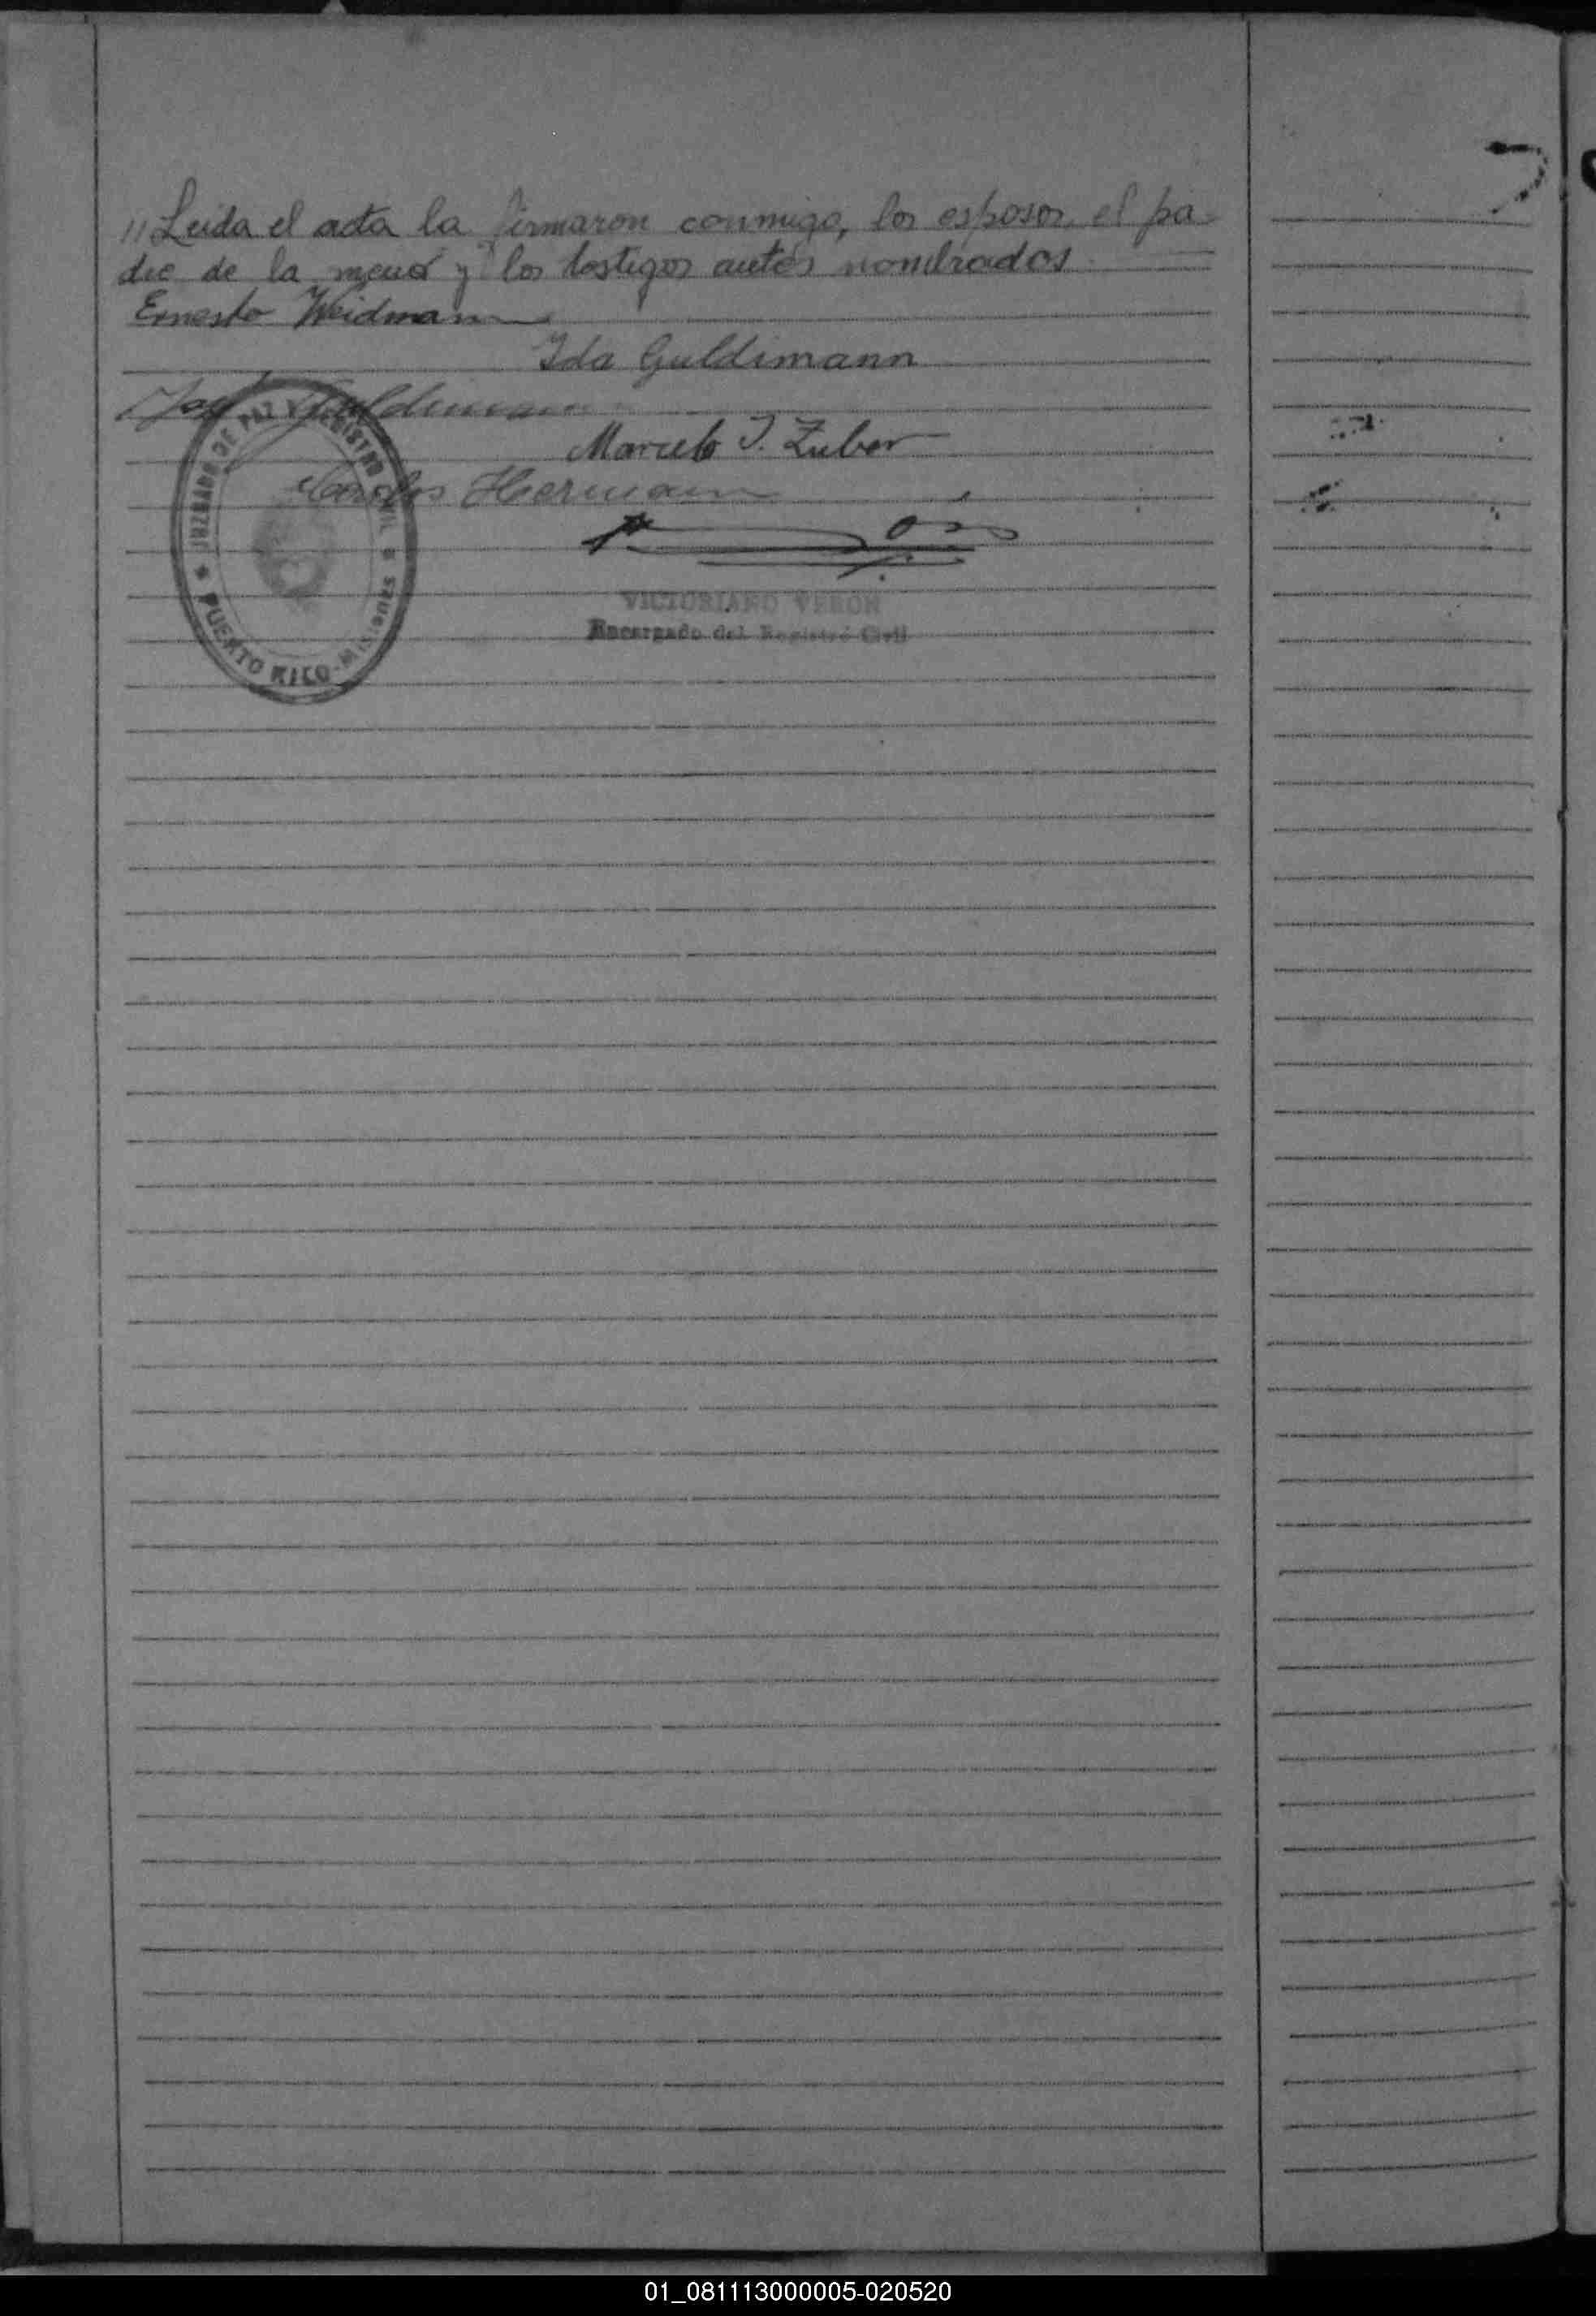 // Leida el acta la firmaron conmigo, los esposos, el pa-
dre de la menor y los testigos antes nombrados
Ernesto Weidmann
Ida Guldimann
Guldimann
Marcelo J. Zuber
Carlos Hermann
JUZGADO DE PAZ Y REGISTRO CIVIL
PUERTO RICO - Misiones
VICTORIANO VERON
Encargado del Registro Civil
01_081113000005-020520